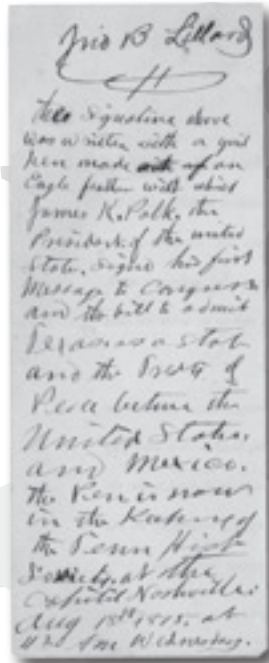 Jno B Lillard
The Signature above
was written with a quill
Pen made out of an
Eagle feather with which
James K. Polk, the
President of the United
States, Signed his first
Message to Congress
and the bill to admit
Texas as a state
and the Treaty of
Peace between the
United States,
and Mexico.
The Pen is now
in the Keeping of
the Tenn Hist
Society, at the
Capitol Nashville
Aug 18th at
Wednesday.